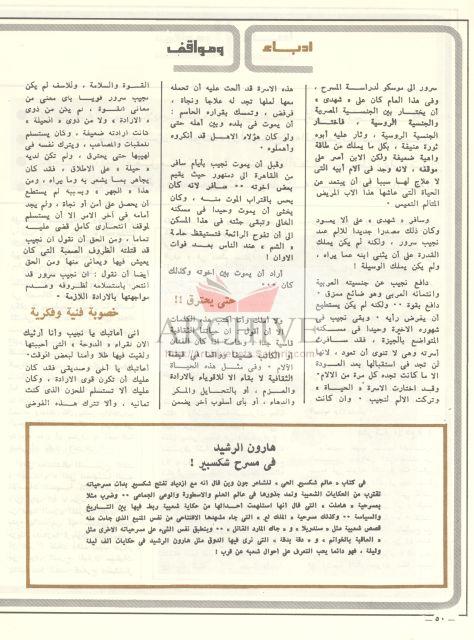 ادباء
ومواقف
سرور الى موسكو لدراسة المسرح ،
وفى هذا العام كان على « شهدى »
أن يختار بين الجنسية المصرية
والجنسية الروسية ، فاختار
الجنسية الروسية ، وثار عليه أبوه
ثورة عنيفة ، بكل ما يملك من طاقة
واهية ضعيفة ولكن الابن أصر على
موقفه ، لانه وجد فى آلام أبيه التى
لا علاج لها سببا فى أن يبتعد عن
الحياة التى عاشها هذا الاب المريض
المتألم التعيس .
وسافر « شهدى » على ألا يعود
وكان ذلك مصدرا جديدا للألم عند
نجيب سرور ، ولكنه لم يكن يملك
القدرة على أن يثنى ابنه عما يراه ،
ولم يكن يملك الوسيلة !
دافع نجيب عن جنسيته العربية
وانتمائه العربى وهو ضائع ممزق ،
دافع بقوة ٠٠ ولكنه لم يكن يستطيع
أن يفرض رأيه ٠٠ وبقى نجيب فى
شهوره الاخيرة وحيدا فى مسكنه
المتواضع بالجيزة ، فقد سافرت
أسرته وهى لا تنوى أن تعود ، لانه
لن تجد فى استقبالها بعد العودة
الا ما كانت تجده كل مرة من الآلام
وقد اختارت الاسرة « الحياة »
وتركت الالم لنجيب ٠ وان كانت
هذه الاسرة قد ألحت عليه أن تحمله
معها لعلها تجد له علاجا ونجاة ،
فرفض ، وتمسك بقراره الحاسم :
أن يموت فى بلده وبين أهله حتى
ولو كان هؤلاء الاهل قد أنكروه
وأهملوه ٠
وقبل أن يموت نجيب بأيام سافر
من القاهرة الى دمنهور حيث يقيم
بعض اخوته ٠٠ سافر لانه كان
يحس باقتراب الموت منه ، وكان
يخشى أن يموت وحيدا فى مسكنه
الخالى وتبقى جثته فى هذا المسكن
الى أن تفوح الرائحة فتستيقظ حاسة
« الشم » عند الناس بعد فوات
الاوان !
أراد أن يموت بين اخوته وكذلك
كان ٠٠٠
حتى يحترق !!
لا أملك وأنا أكتب هذه الكلمات
الا أن أقول : أن حياتنا الثقافية
قاسية جدا
الكاتب ضعيفا ووقع فى قبضة
الآلام ٠ وفى مثل هذه الحياة
الثقافية لا بقاء الا للأقوياء بالارادة
والعزم ، أو بالتحايل والمكر
والدهاء ، أو بأى أسلوب آخر يضمن
القوة والسلامة ، وللأسف لم يكن
نجيب سرور قويا بأى معنى من
معانى القوة ، لم يكن من ذوى
« الارادة » ولا من ذوى « الحيلة »
كانت ارادته ضعيفة ، وكان يستسلم
للعقبات والمصاعب ، ويترك نفسه فى
لهيبها حتى يحترق ، ولم تكن لديه
« حيلة » على الاطلاق ، فقد كان
يجاهر بما يشعر به وما يراه ، ومن
هذا « الجهر » وبسببه لم يستطع
أن يحصل على أمن أو نجاة ، ولم يجد
أمامه فى آخر الامر الا أن يستسلم
لموقف انتحارى كامل قضى عليه
تماما ، ومن الحق أن نقول ان نجيب
قد قتلته الظروف الصعبة التى كان
يعيش فيها ويعانى منها ومن الحق
أيضا أن نقول : ان نجيب سرور قد
انتحر باستسلامه لظروفه وعدم
مواجهتها بالارادة اللازمة ٠
خصوبة فنية وفكرية
اننى أعاتبك يا نجيب وأنا أرثيك
الان لقراء « الدوحة » التى أحببتها
ولقيت فيها ظلا وأمنا لبعض الوقت ٠
أعاتبك يا أخى وصديقى فقد كان
عليك أن تكون قوى الارادة ، وكان
عليك ألا تستسلم للحزن الذى كنت
تعانيه ، وألا تترك هذه الفوضى
ARCHIVE
هارون الرشيد
فى مسرح شكسبير !
فى كتاب « عالم شكسبير الحى » للشاعر جون وين قال انه مع ازدياد تفتح شكسبير بدأت مسرحياته
تقترب من الحكايات الشعبية وتمد جذورها فى عالم الحلم والاسطورة والوعى الجماعى ٠٠ وضرب مثلا
بمسرحية « هاملت » التى قال انها استلهمت أحداثها من حكاية شعبية ربط فيها بين التاريخ
والسياسة ٠٠ وكذلك مسرحية « الملك لير » التى جاء مشهدها الافتتاحى من نفس المنبع الذى جاءت منه
قصص شعبية مثل « سندريلا » و « جاك المارد القاتل » ٠٠ وينطبق نفس الشىء على مسرحياته الاخرى مثل
« العاقبة بالخواتم » و « دقة بدقة » التى نرى فيها الدوق مثل هارون الرشيد فى حكايات الف ليلة
وليلة ، فهو دائما يحب التعرف على أحوال شعبه عن قرب !
— ٥٠ —